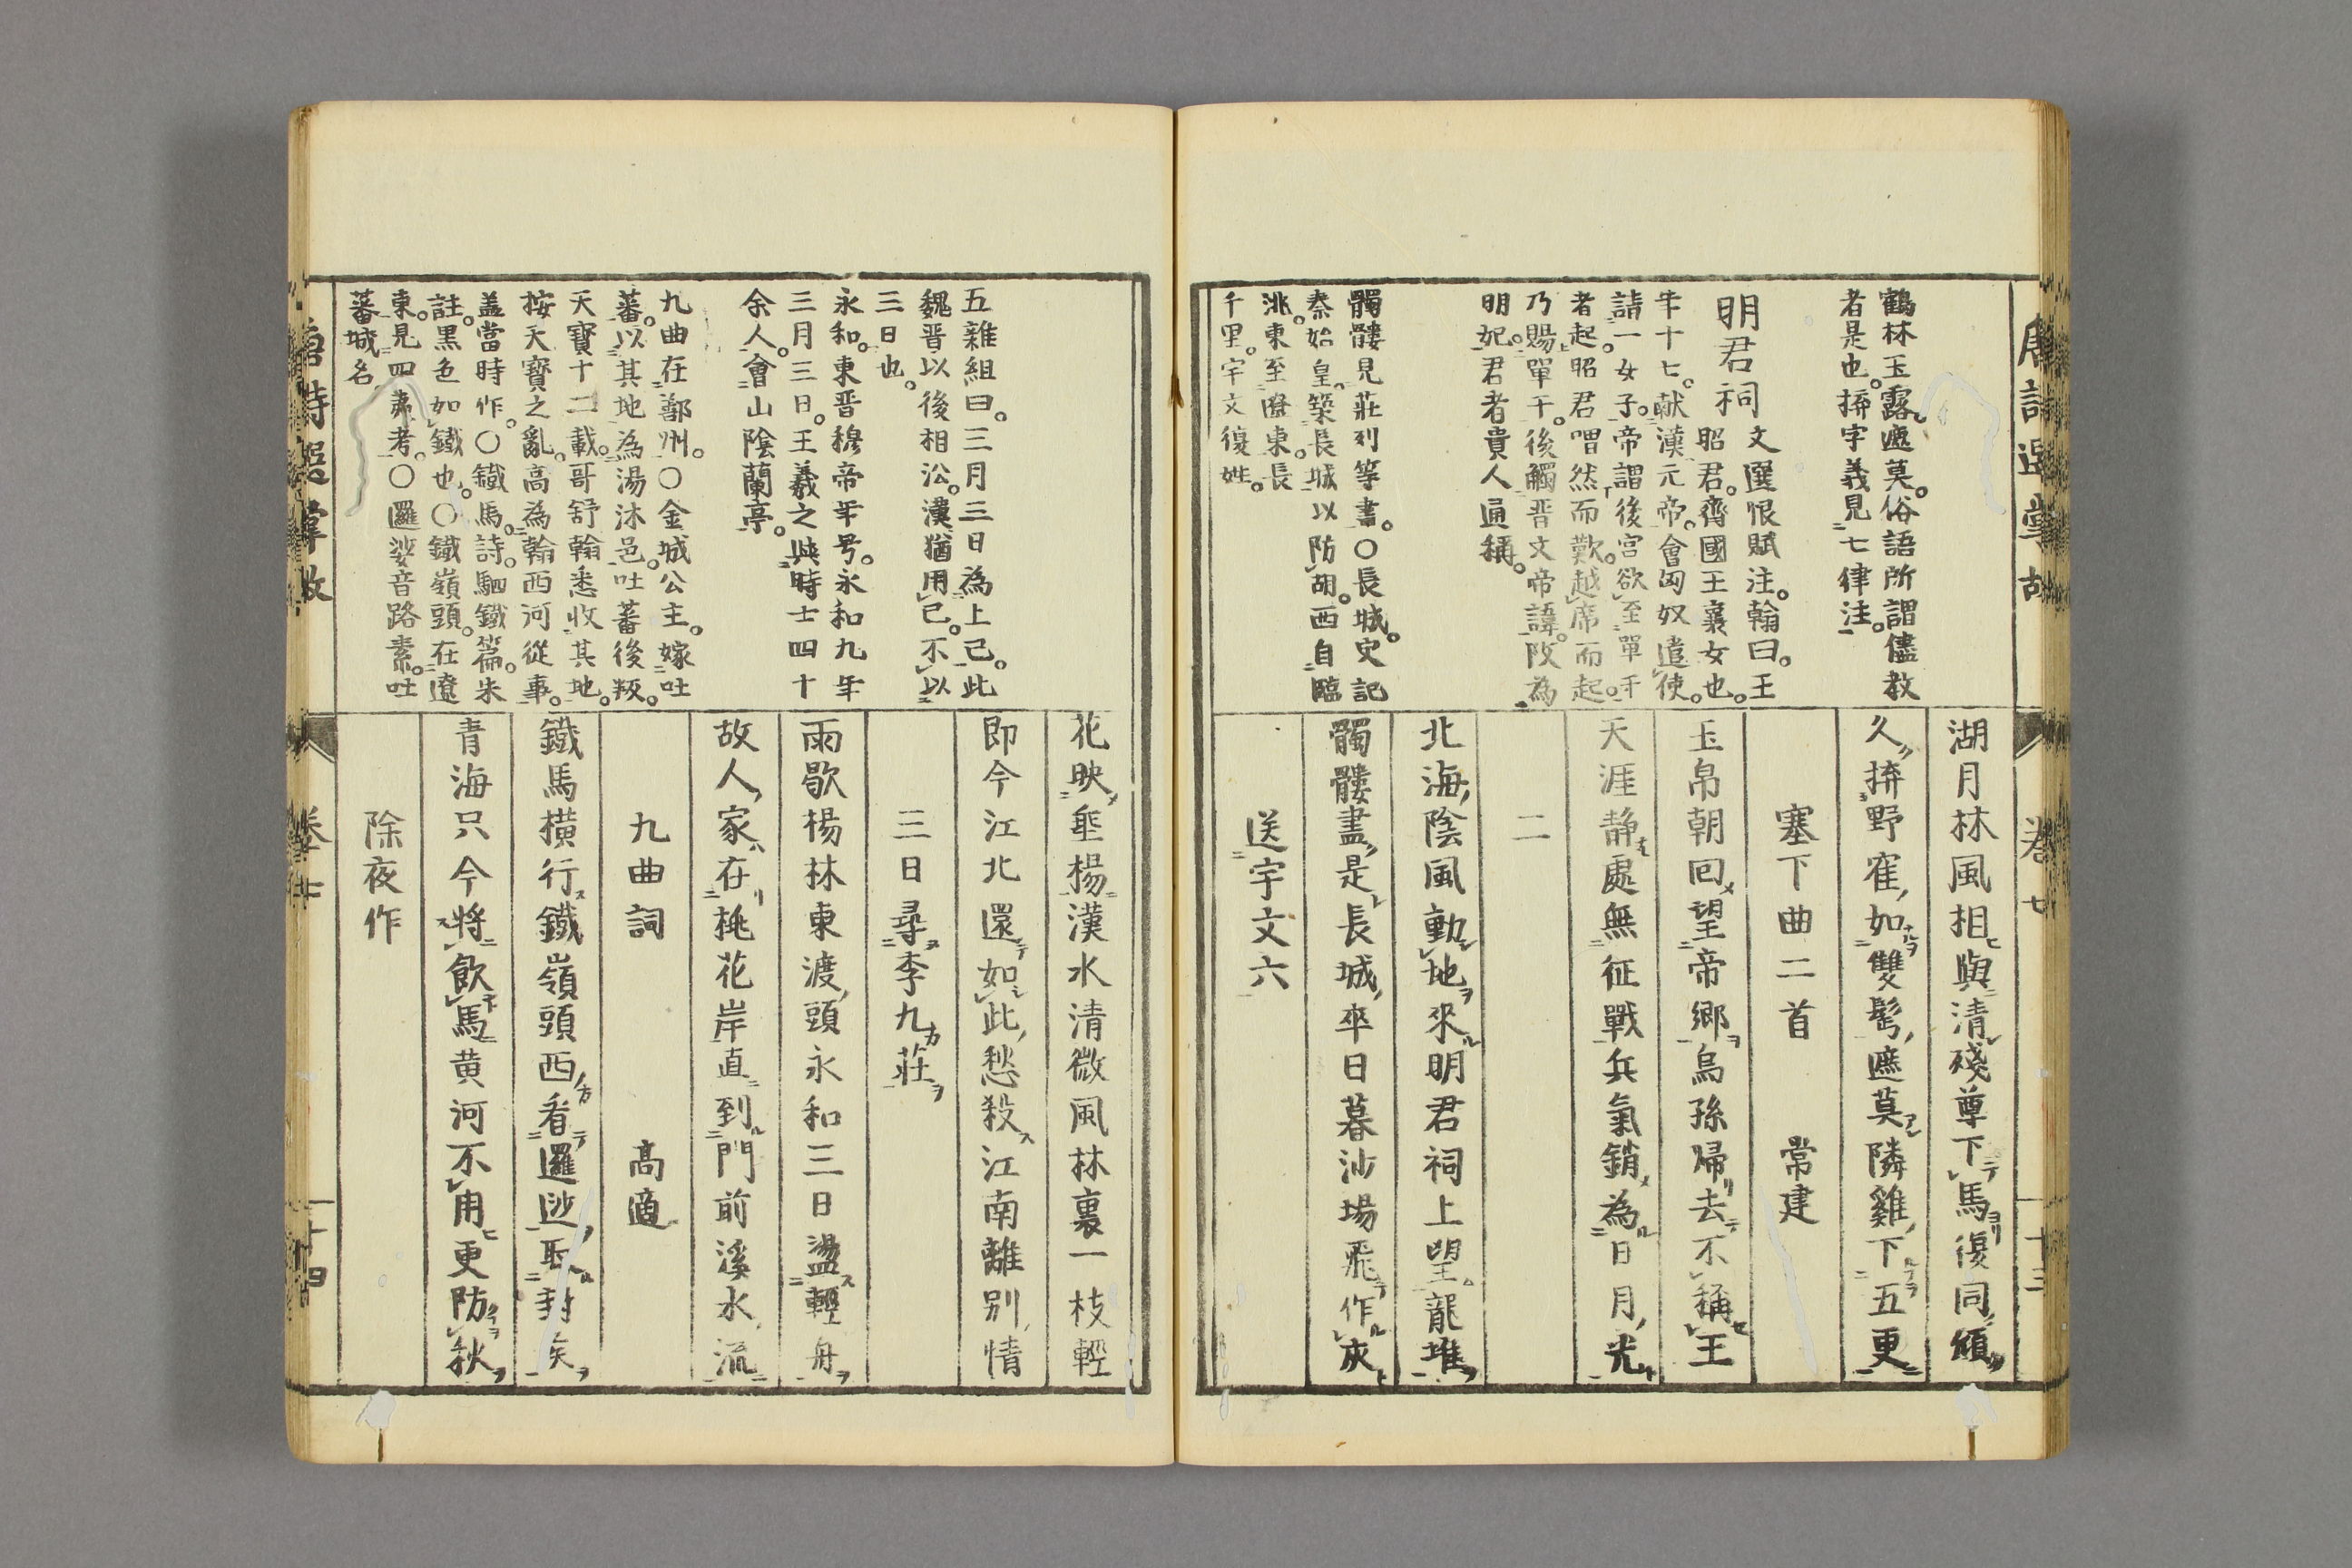 鶴林玉露。遮莫。俗語所謂儘教
者是也。擠字義見七律注。
明君祠
文選恨賦注。翰曰。王
昭君。齊國王襄女也。
年十七。献漢元帝。會匈奴遣使。
請一女子。帝謂後宮欲至單于
者起。昭君喟然而歎。越席而起。
乃賜單于。後觸晋文帝諱。改為
明妃。君者貴人通稱。
髑髏見莊列等書。〇長城。史記
秦始皇。築長城以防胡。西自臨
洮。東至遼東。長
千里。宇文復姓。
湖月林風相與清殘尊下馬復同傾
久擠野寉如雙髩遮莫隣雞下五更
塞下曲二首　常建
玉帛朝回望帝郷烏孫歸去不稱王
天涯静處無征戰兵氣銷為日月光
二
北海陰風動地來明君祠上望龍堆
髑髏盡是長城卒日暮沙場飛作灰
送宇文六
五雜組曰。三月三日為上已。此
魏晋以後相㳂。漢猶用已。不以
三日也。
永和。東晋穆帝年号。永和九年
三月三日。王羲之與時士四十
余人。會山陰蘭亭。
九曲在鄯州。〇金城公主。嫁吐
蕃。以其地為湯沐邑。吐蕃後叛。
天寳十二載。哥舒翰悉收其地。
按天寳之亂。高為翰西河從事。
盖當時作。〇鐵馬。詩。駟鐵篇。朱
註。黒色如鐵也。〇鐵嶺頭。在遼
東。見四夷考。〇邏娑音路素。吐
蕃城名
花映垂楊漢水清微風林裏一枝輕
即今江北還如此愁殺江南離别情
三日尋李九莊
雨歇楊林東渡頭永和三日盪輕舟
故人家在桃花岸直到門前溪水流
九曲詞　高適
鐵馬横行鐵嶺頭西看邏逤取封侯
青海只今将飲馬黄河不用更防秋
除夜作